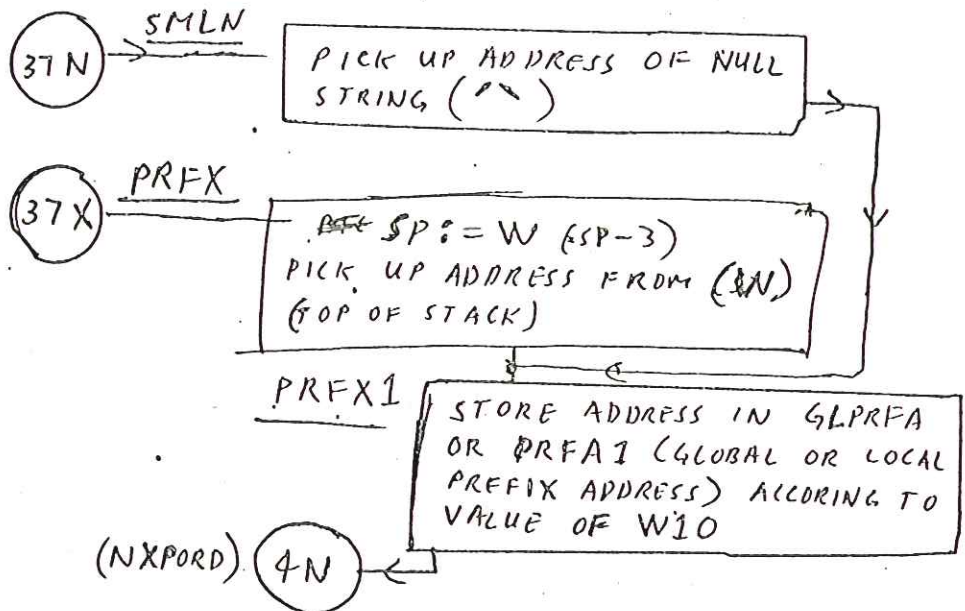 37N
SMLN
PICK UP ADDRESS OF NULL
STRING (^^)
37X
PRFX
SP := W (SP-3)
PICK UP ADDRESS FROM (SN)
(TOP OF STACK)
PRFX1
STORE ADDRESS IN GLPRFA
OR PRFA1 (GLOBAL OR LOCAL
PREFIX ADDRESS) ACCORING TO
VALUE OF W10
(NXPORD) 4N